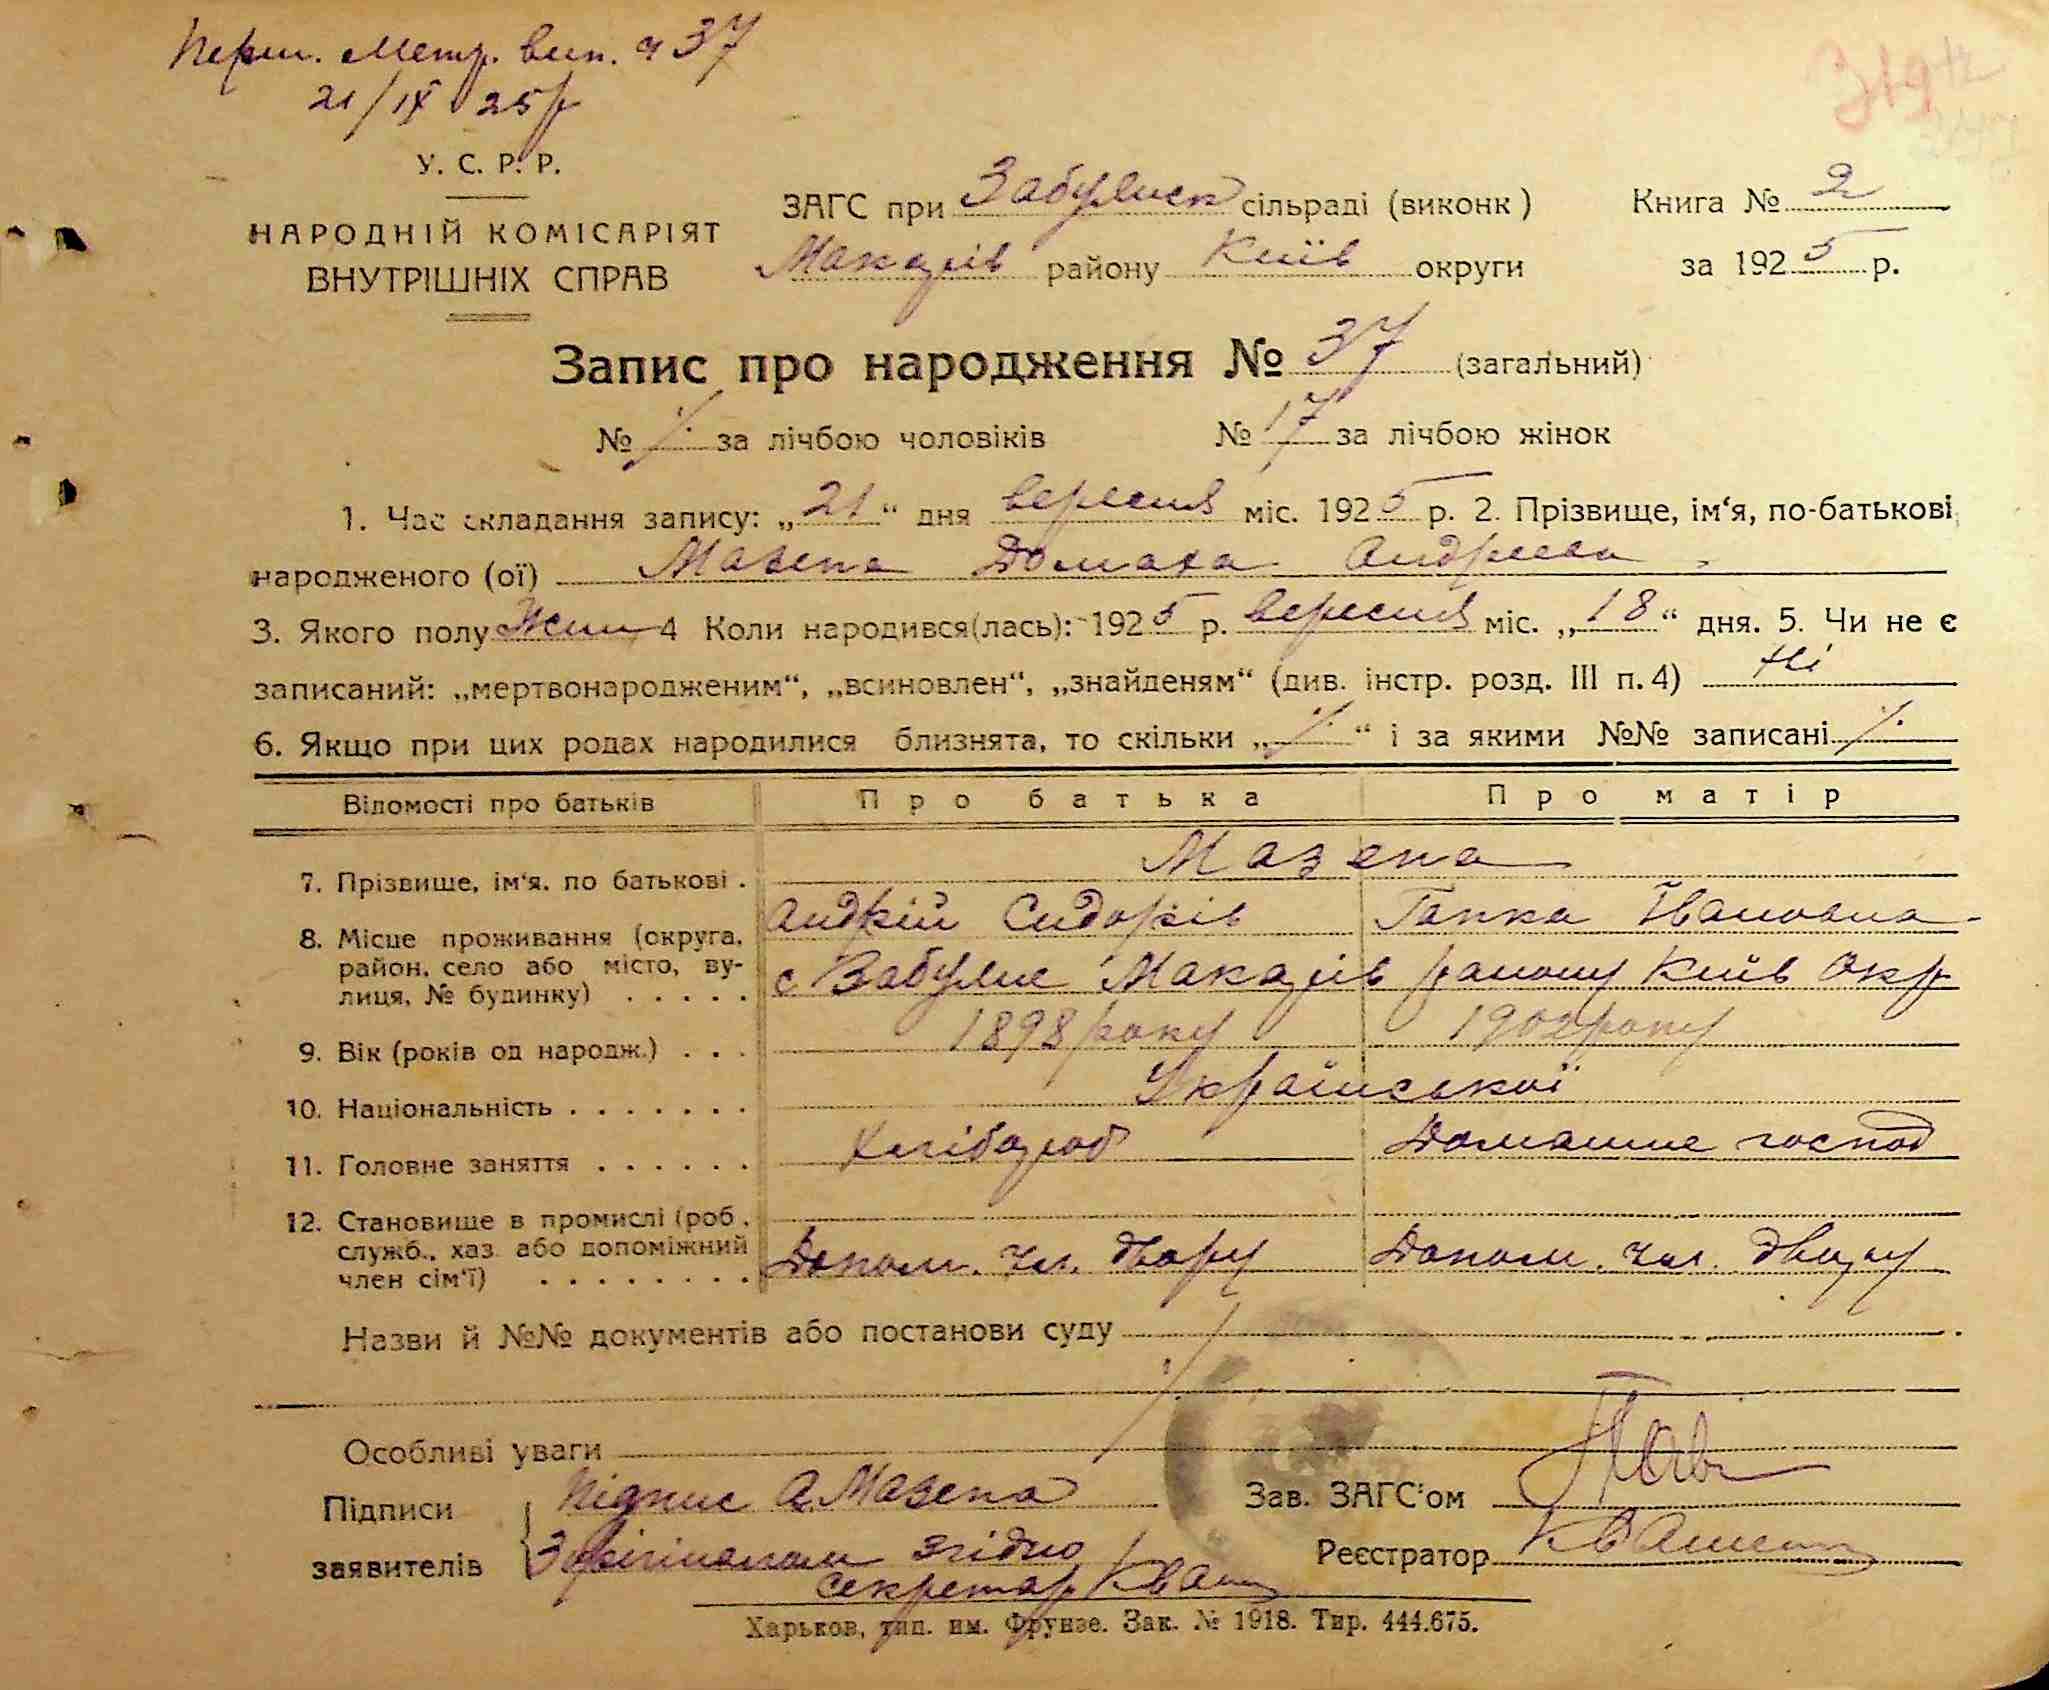 Перш. Метр. вип. ч 37
21/IX 25р
319
У. С. Р. Р.
НАРОДНІЙ КОМІСАРІЯТ
ВНУТРІШНІХ СПРАВ
ЗАГС при Забуянск сільраді (виконк) Книга № 2
Макарів району Київ округи за 1925 р.
Запис про народження № 37 (загальний)
№ ٪ за лічбою чоловіків № 17 за лічбою жінок
1. Час складання запису: „21“ дня вересня міс. 1925 р. 2. Прізвище, ім‘я, по-батькові
народженого (ої) Мазепа Домаха Андреева
3. Якого полу Жин 4 Коли народився(лась): 1925 р. вересня міс. „18“ дня. 5. Чи не є
записаний: „мертвонародженим“, „всиновлен“, „знайденям“ (див. інстр. розд. III п. 4) Ні
6. Якщо при цих родах народилися близнята, то скільки „٪“ і за якими №№ записані ٪
Відомості про батьків Про батька Про матір
7. Прізвище, ім‘я, по батькові . Мазепа
Андрій Сидорів Гапка Івановна
8. Місце проживання (округа, район, село або місто, вулиця, № будинку) . . . . . с Забуяне Макарів району Київ Окр
9. Вік (років од народж.) . . . 1898 року 1902 року
10. Національність . . . . . . . Української
11. Головне заняття . . . . . . Хлібороб Домашнє господ
12. Становище в промислі (роб., служб., хаз. або допоміжний член сім‘ї) . . . . . . . . Допом. чл. двору Допом. чл. двору
Назви й №№ документів або постанови суду ٪
Особливі уваги
Підписи заявителів Підпис А. Мазепа
З оригіналом згідно
секретар Кваш
Зав. ЗАГС‘ом
Реєстратор
Харьков, тип. им. Фрунзе. Зак. № 1918. Тир. 444.675.